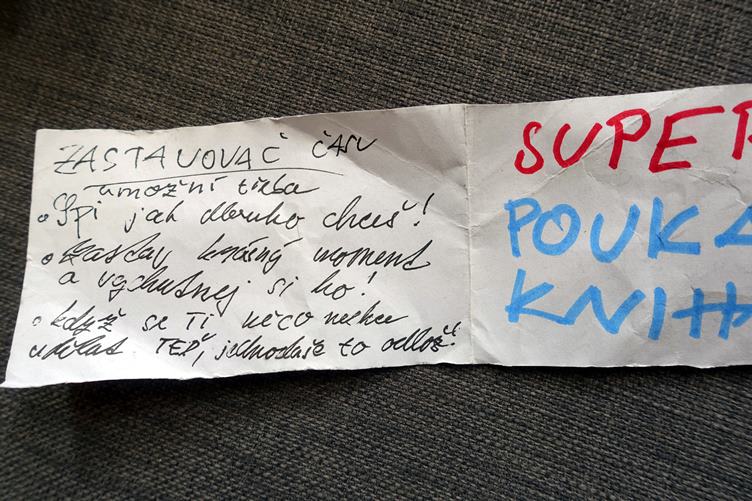 ZASTAVOVAČ ČASU
umožní třeba
• Spi jak dlouho chceš!
• zastav krásný moment
a vychutnej si ho!
• když se Ti něco nechce
udělat TEĎ, jednoduše to odlož!
SUPER
POUKA
KNIH